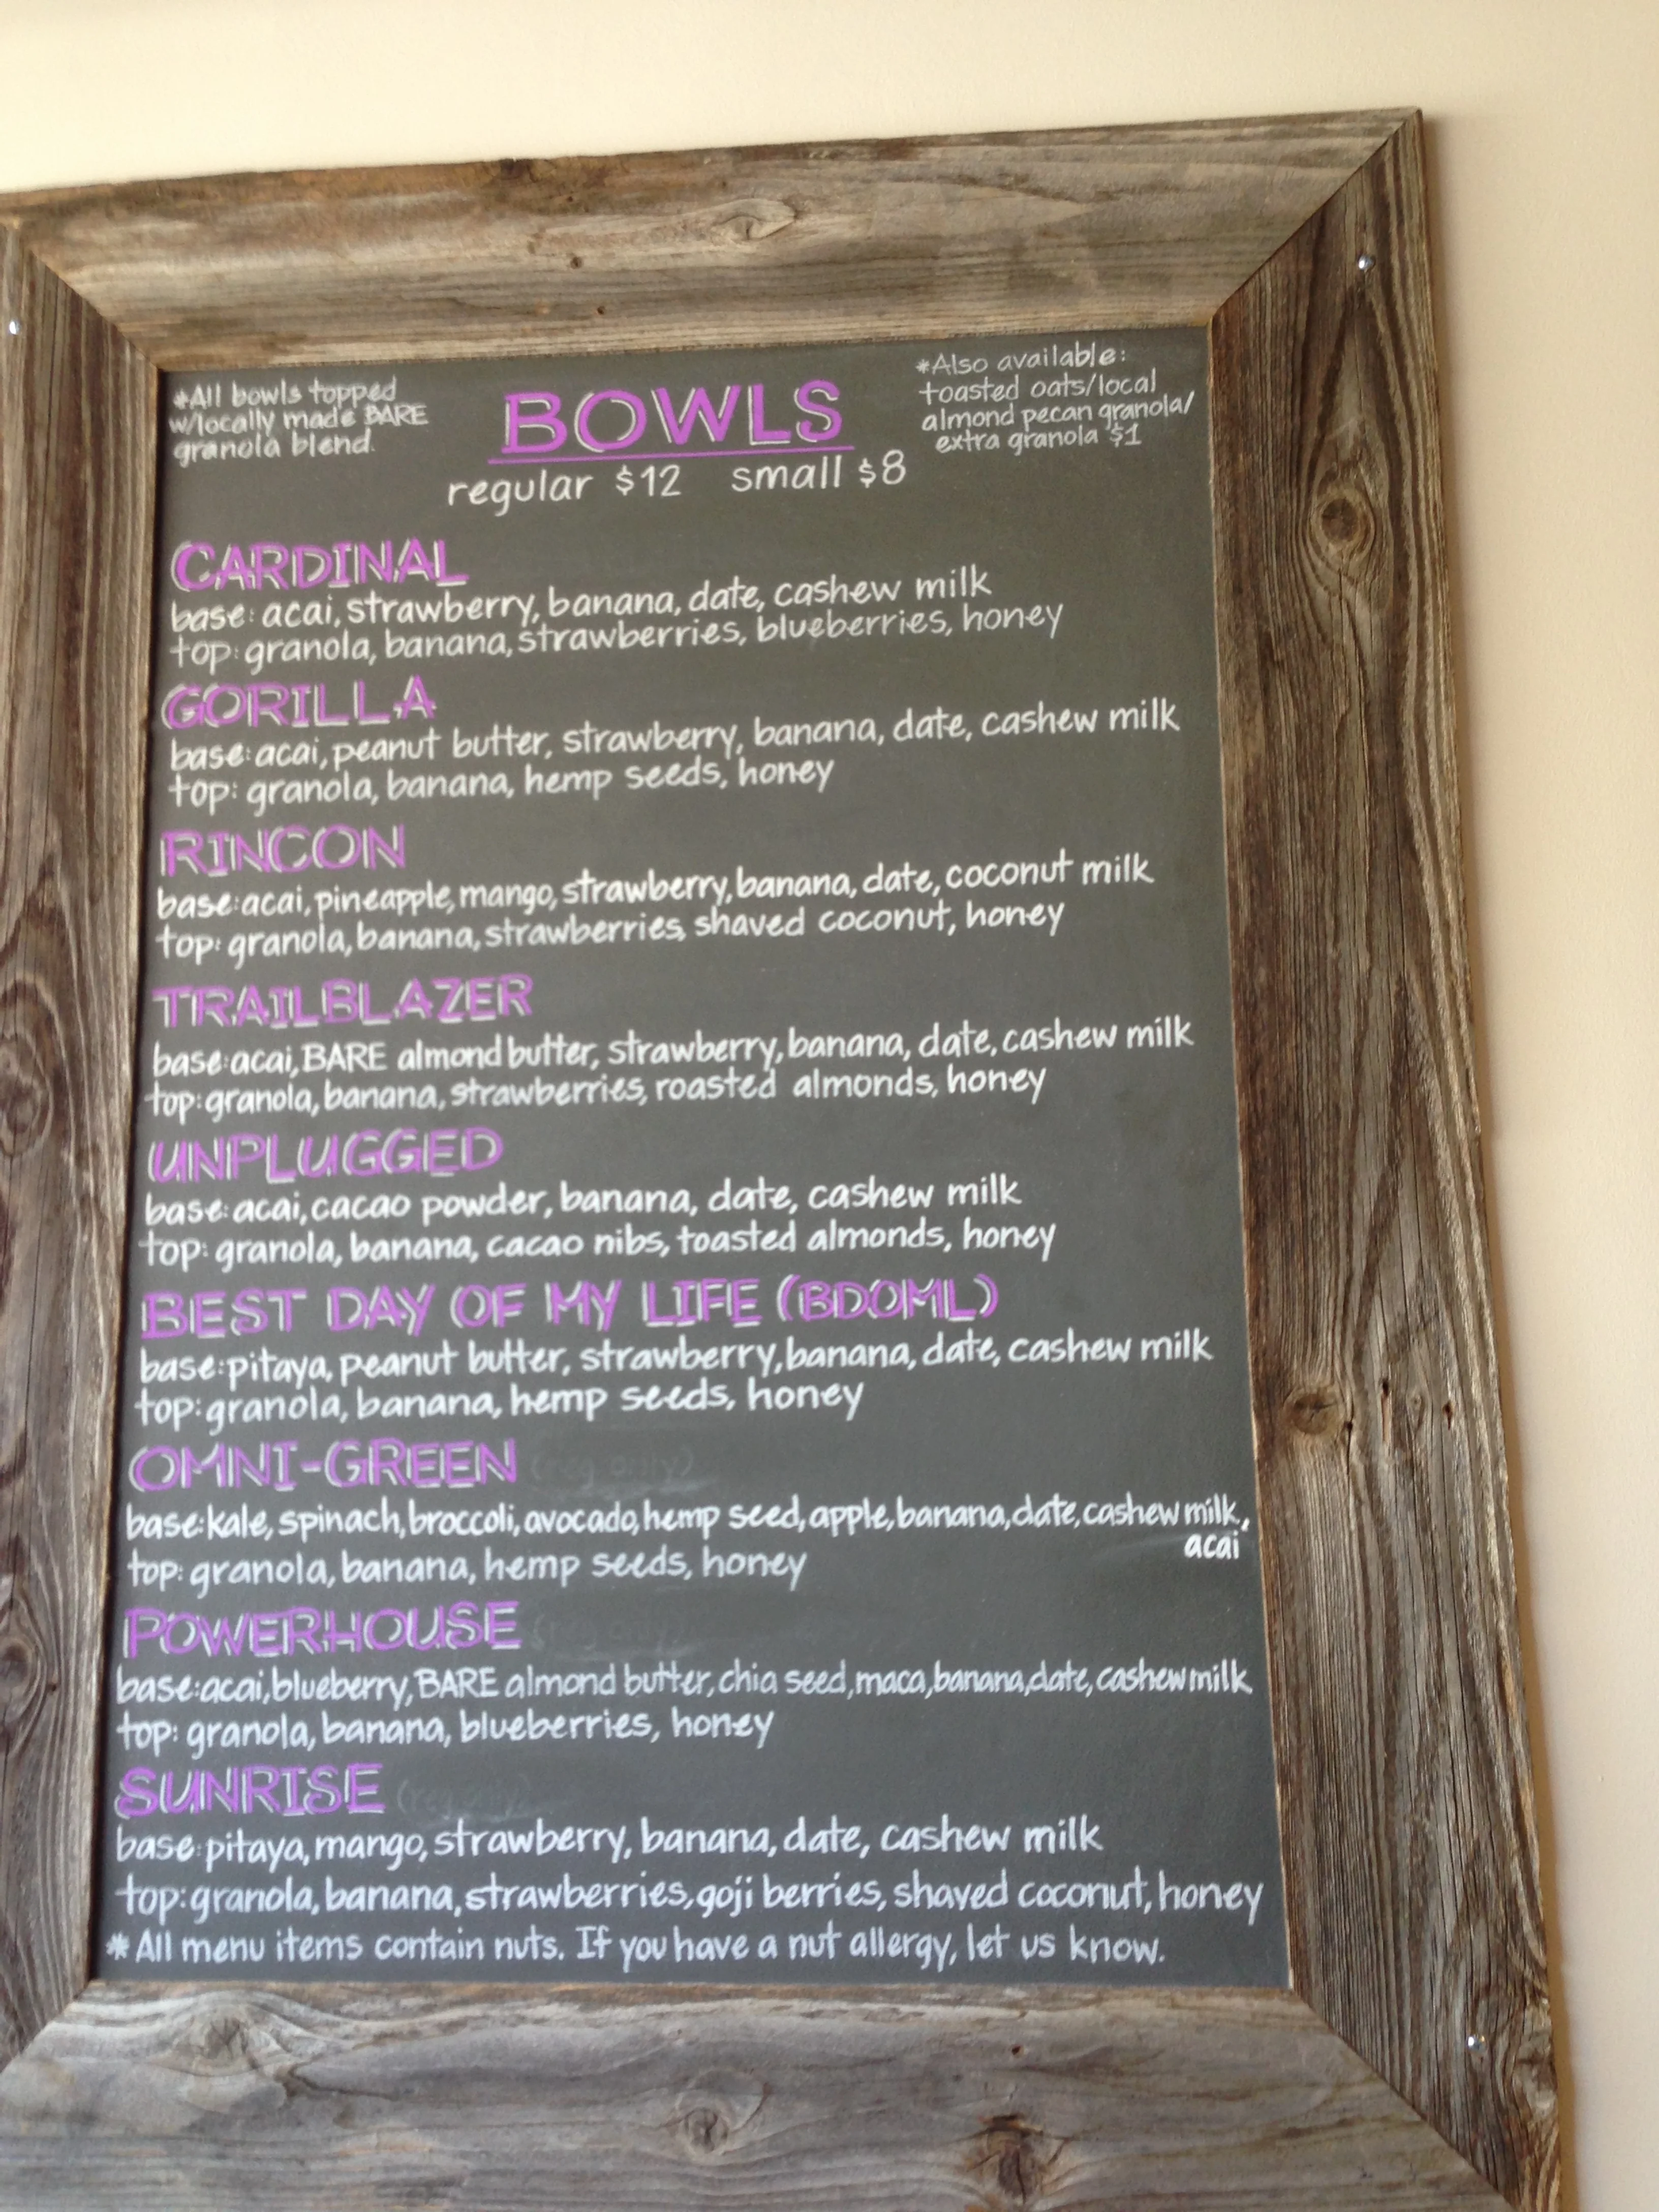 *All bowls topped
w/locally made BARE
granola blend.
BOWLS
regular $12 small $8
*Also available:
toasted oats/local
almond pecan granola/
extra granola $1
CARDINAL
base: acai, strawberry, banana, date, cashew milk
top: granola, banana, strawberries, blueberries, honey
GORILLA
base: acai, peanut butter, strawberry, banana, date, cashew milk
top: granola, banana, hemp seeds, honey
RINCON
base: acai, pineapple, mango, strawberry, banana, date, coconut milk
top: granola, banana, strawberries, shaved coconut, honey
TRAILBLAZER
base: acai, BARE almond butter, strawberry, banana, date, cashew milk
top: granola, banana, strawberries, roasted almonds, honey
UNPLUGGED
base: acai, cacao powder, banana, date, cashew milk
top: granola, banana, cacao nibs, toasted almonds, honey
BEST DAY OF MY LIFE (BDOML)
base: pitaya, peanut butter, strawberry, banana, date, cashew milk
top: granola, banana, hemp seeds, honey
OMNI-GREEN (reg only)
base: kale, spinach, broccoli, avocado, hemp seed, apple, banana, date, cashew milk,
acai
top: granola, banana, hemp seeds, honey
POWERHOUSE (reg only)
base: acai, blueberry, BARE almond butter, chia seed, maca, banana, date, cashew milk
top: granola, banana, blueberries, honey
SUNRISE (reg only)
base: pitaya, mango, strawberry, banana, date, cashew milk
top: granola, banana, strawberries, goji berries, shaved coconut, honey
* All menu items contain nuts. If you have a nut allergy, let us know.